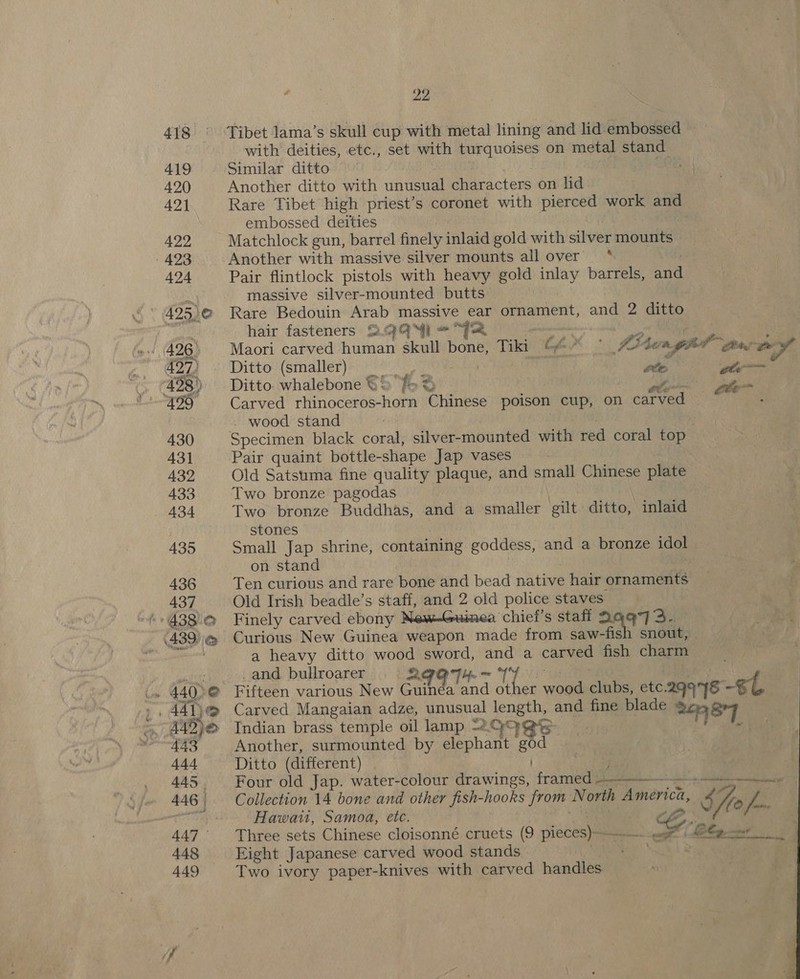 22
418 Tibet lama's skull cup with metal lining and lid embossed
with deities, etc., set with turquoises on metal stand
419 Similar ditto
420 Another ditto with unusual characters on lid
421 Rare Tibet high priest's coronet with pierced work and
embossed deities
422 Matchlock gun, barrel finely inlaid gold with silver mounts
423 Another with massive silver mounts all over
424 Pair flintlock pistols with heavy gold inlay barrels, and
massive silver-mounted butts
425 Rare Bedouin Arab massive ear ornament, and 2 ditto
hair fasteners
426 Maori carved human skull bone, Tiki
427 Ditto (smaller)
428 Ditto whalebone
429 Carved rhinoceros-horn Chinese poison cup, on carved
wood stand
430 Specimen black coral, silver-mounted with red coral top
431 Pair quaint bottle-shape Jap vases
432 Old Satsuma fine quality plaque, and small Chinese plate
433 Two bronze pagodas
434 Two bronze Buddhas, and a smaller gilt ditto, inlaid
stones
435 Small Jap shrine, containing goddess, and a bronze idol
on stand
436 Ten curious and rare bone and bead native hair ornaments
437 Old Irish beadle's staff, and 2 old police staves
438 Finely carved ebony New Guinea chief's staff 29973.
439 Curious New Guinea weapon made from saw-fish snout,
a heavy ditto wood sword, and a carved fish charm
and bullroarer 29974-77
440 Fifteen various New Guinea and other wood clubs, etc.
441 Carved Mangaian adze, unusual length, and fine blade
442 Indian brass temple oil lamp
443 Another, surmounted by elephant god
444 Ditto (different)
445 Four old Jap. water-colour drawings, framed
446 Collection 14 bone and other fish-hooks from North America,
Hawaii, Samoa, etc.
447 Three sets Chinese cloisonné cruets (9 pieces)
448 Eight Japanese carved wood stands
449 Two ivory paper-knives with carved handles